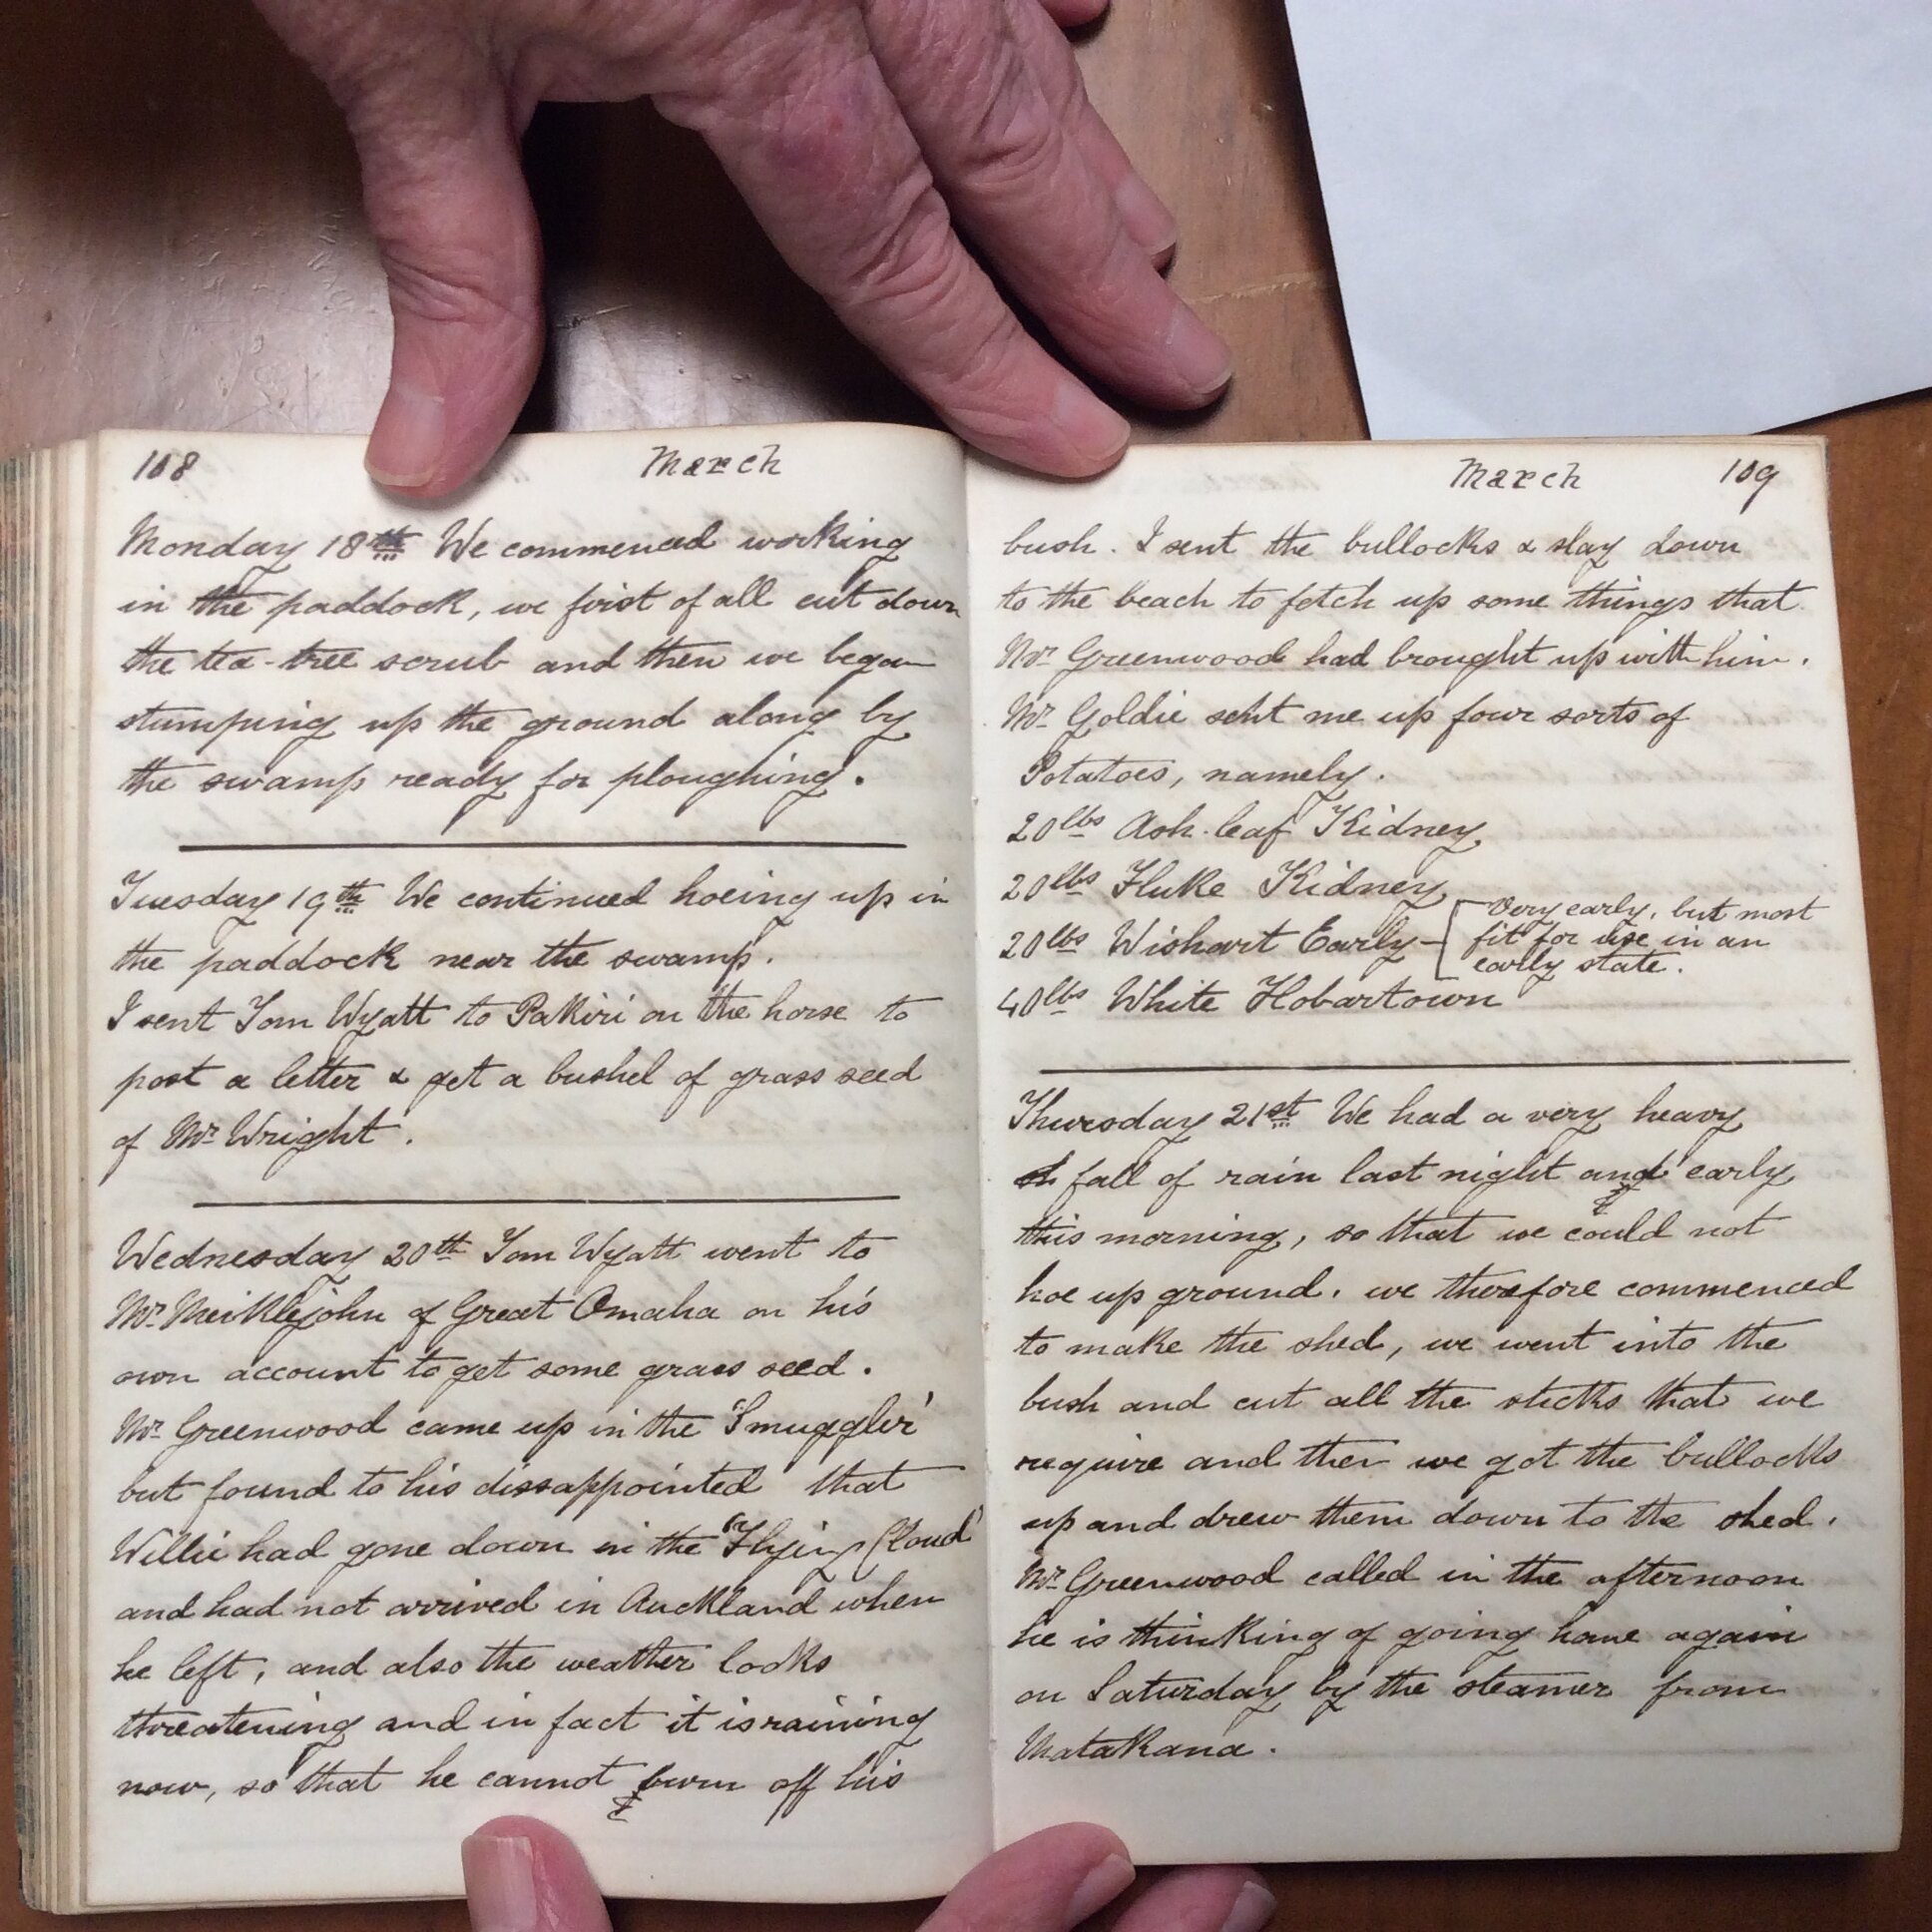 108 March
Monday 18th We commenced working
in the paddock, we first of all cut down
the tea-tree scrub and then we began
stumping up the ground along by
the swamp ready for ploughing.
Tuesday 19th We continued hoeing up in
the paddock near the swamp.
I sent Tom Wyatt to Pakiri on the horse to
post a letter & get a bushel of grass seed
of Mr Wright.
Wednesday 20th Tom Wyatt went to
Mr. Meiklejohn of Great Omaha on his
own account to get some grass seed.
Mr Greenwood came up in the 'Smuggler'
but found to his dissappointed that
Willie had gone down in the "Flying Cloud"
and had not arrived in Auckland when
he left, and also the weather looks
threatening and in fact it is raining
now, so that he cannot burn off his
March 109
bush. I sent the bullocks & slay down
to the beach to fetch up some things that
Mr Greenwood had brought up with him.
Mr Goldie sent me up four sorts of
Potatoes, namely.
20lbs Ash-leaf Kidney
20lbs Fluke Kidney
20lbs Wishart Early - Very early, but most
fit for use in an
early state.
40lbs White Hobartown
Thursday 21st We had a very heavy
fall of rain last night and early
this morning, so that we could not
hoe up ground. we therefore commenced
to make the shed, we went into the
bush and cut all the sticks that we
require and then we got the bullocks
up and drew them down to the shed.
Mr Greenwood called in the afternoon
he is thinking of going home again
on Saturday by the steamer from
Matakana.